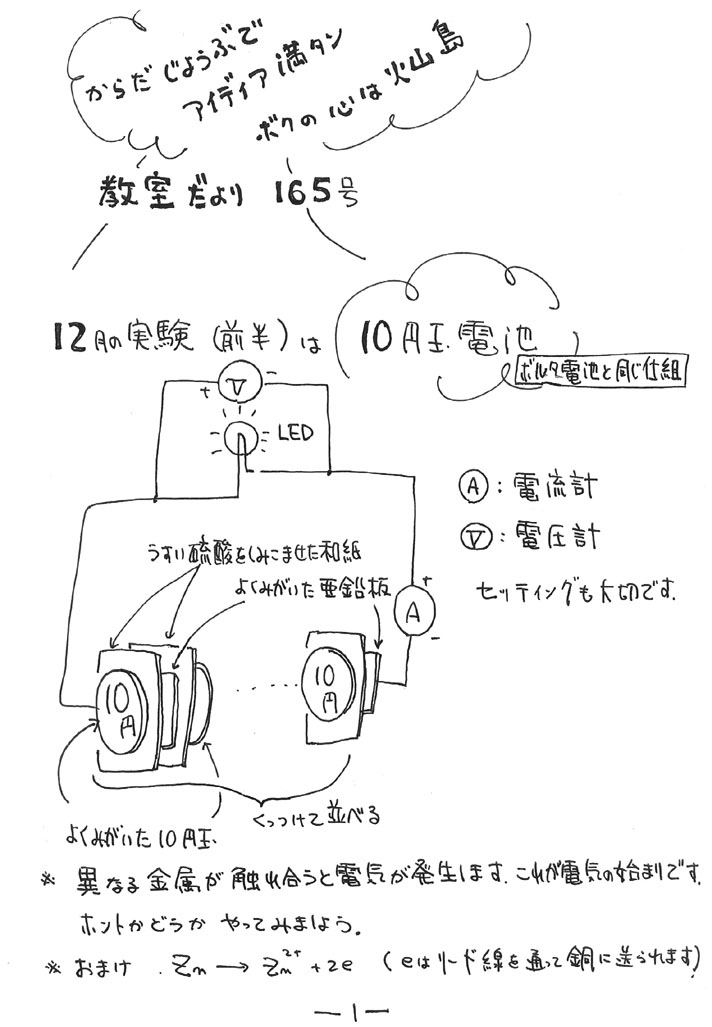 からだじょうぶで
アイディア満タン
ボクの心は火山島
教室だより 165号
12月の実験(前半)は 10円玉電池
ボルタ電池と同じ仕組
+ V -
LED
Ⓐ:電流計
Ⓥ:電圧計
セッティングも大切です.
うすい硫酸をしみこませた和紙
よくみがいた亜鉛板
+
A
-
10円
10円
くっつけて並べる
よくみがいた10円玉
※ 異なる金属が触れ合うと電気が発生します.これが電気の始まりです.
ホントかどうかやってみましょう.
※ おまけ . Zn → Zn²⁺ + 2e (eはリード線を通って銅に送られます)
—1—